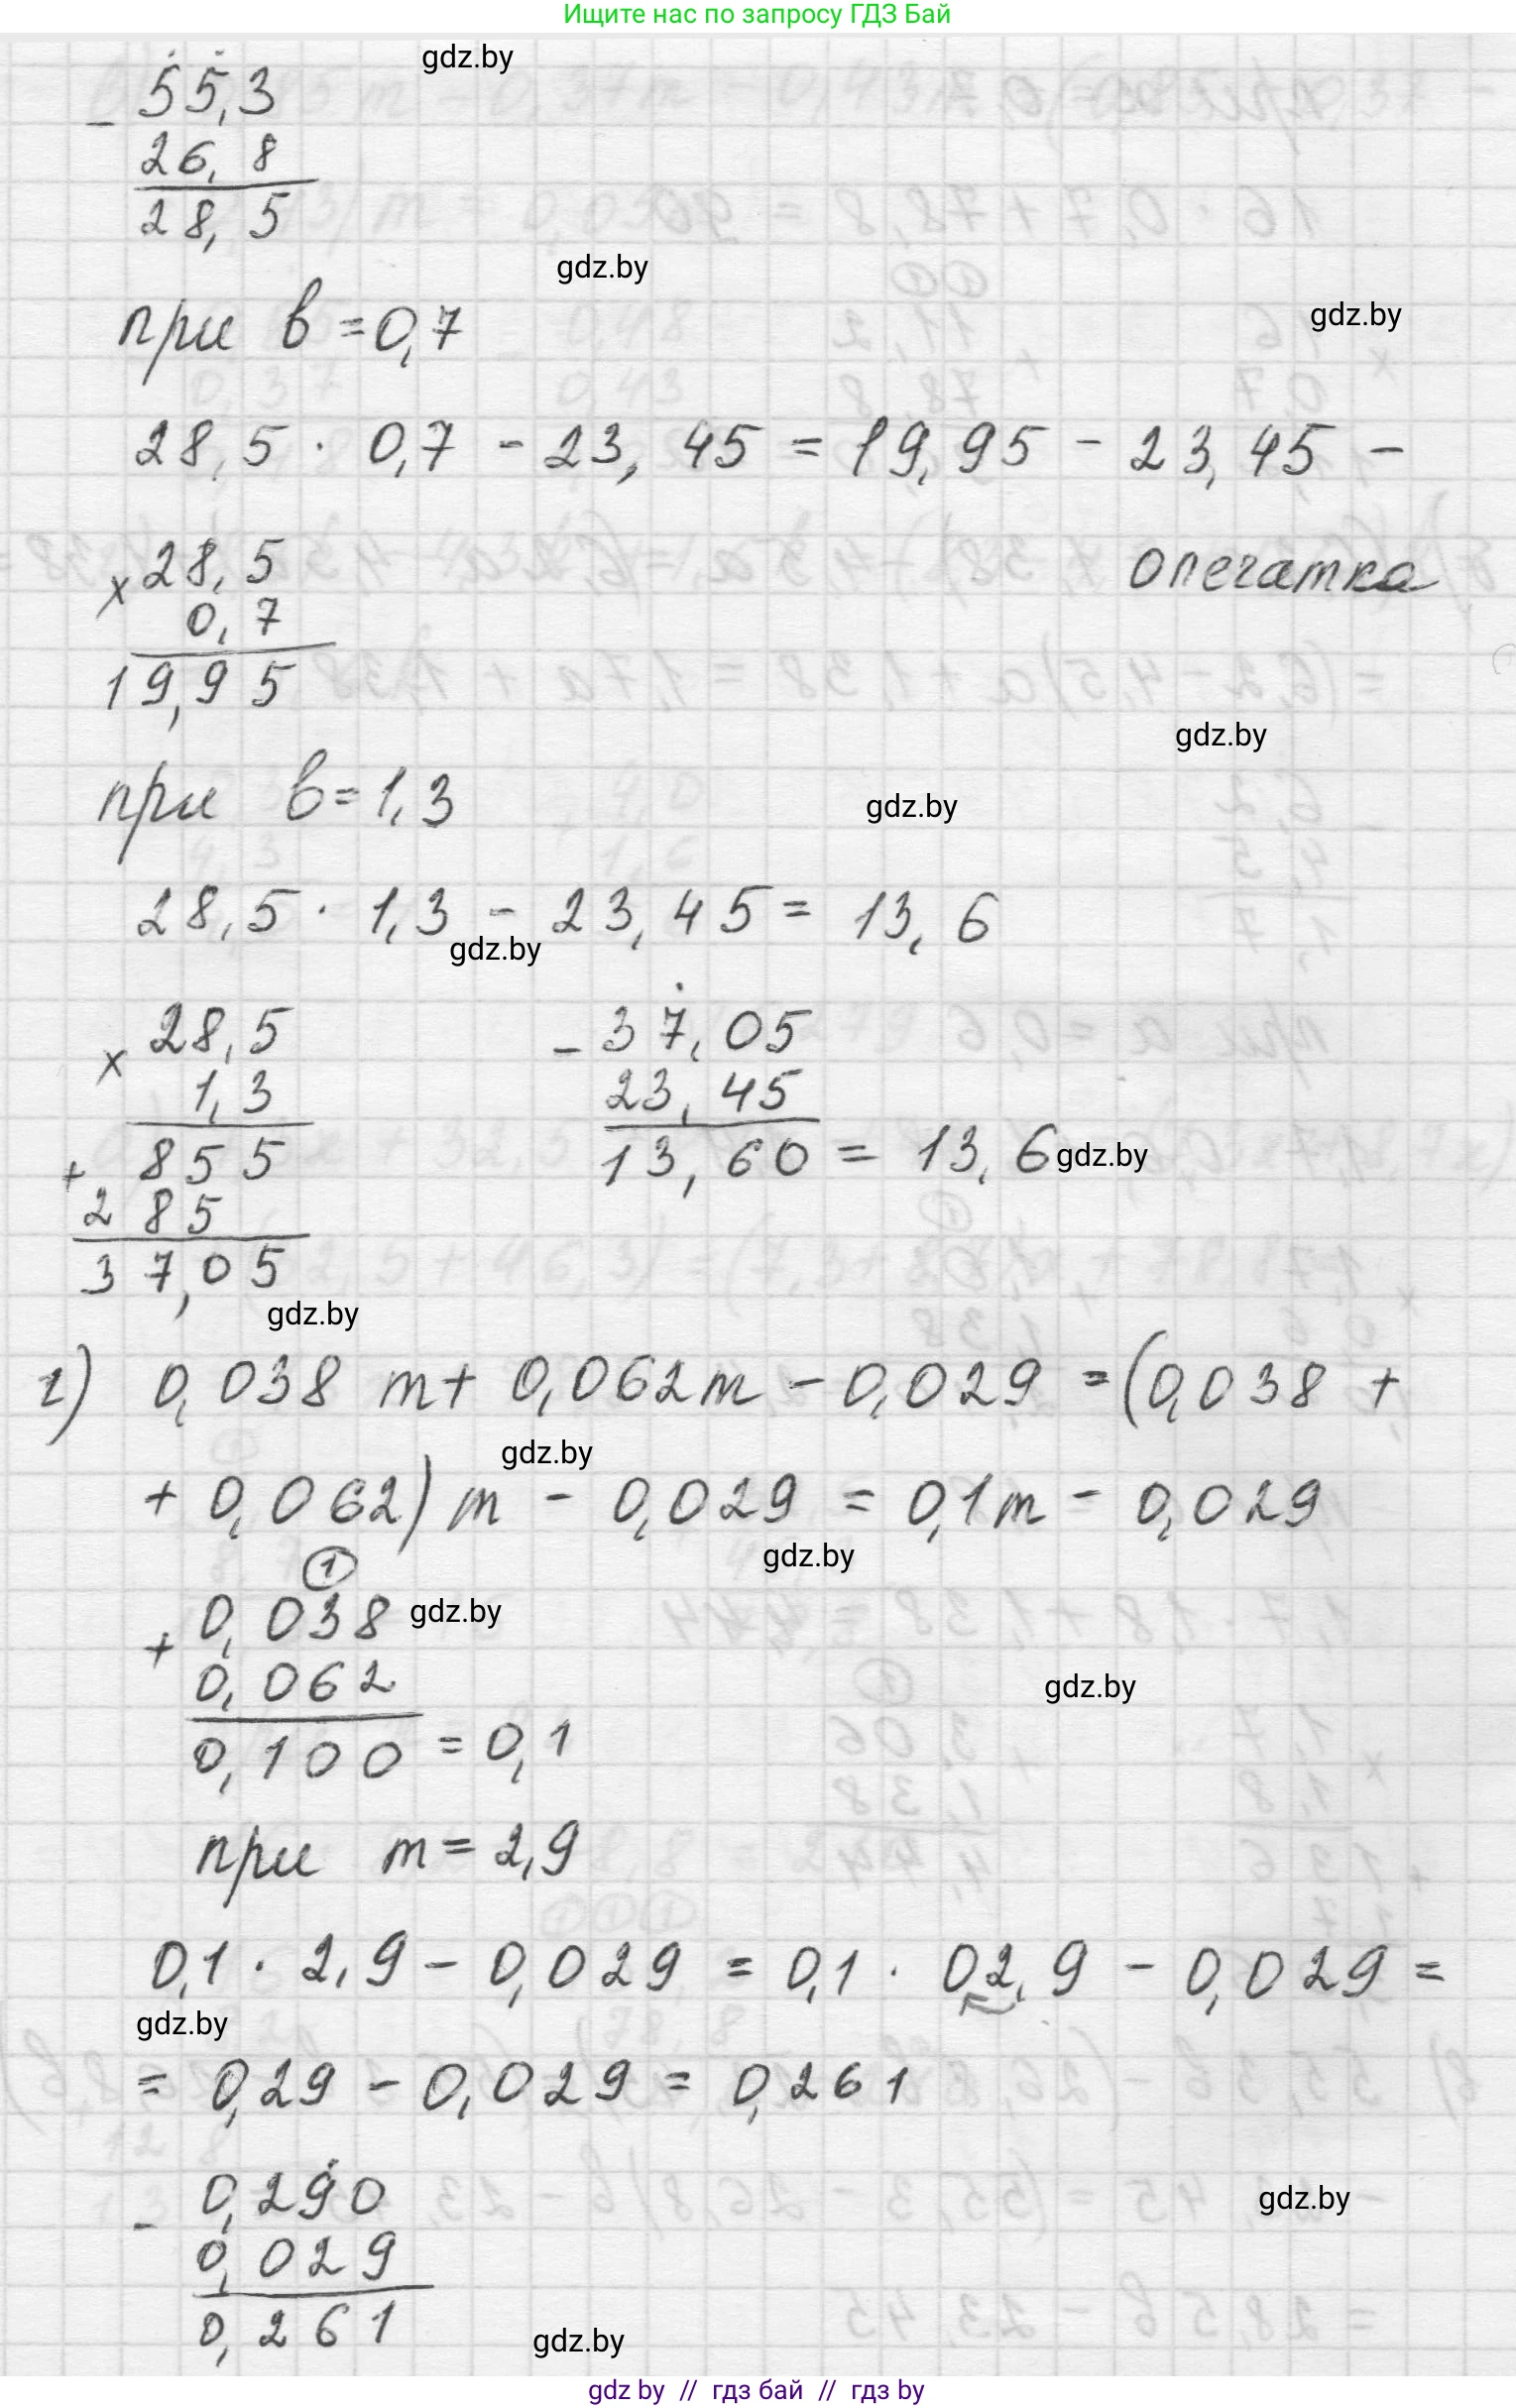 Ищите нас по запросу ГДЗ Бай
gdz.by
- 55,3
26,8
28,5
gdz.by
при в = 0,7
gdz.by
28,5 · 0,7 - 23,45 = 19,95 - 23,45 -
опечатка
x 28,5
0,7
19,95
gdz.by
при в = 1,3
gdz.by
28,5 · 1,3 - 23,45 = 13,6
gdz.by
x 28,5
1,3
+ 855
285
37,05
- 37,05
23,45
13,60 = 13,6
gdz.by
gdz.by
г) 0,038 m + 0,062 m - 0,029 = (0,038 +
gdz.by
+ 0,062) m - 0,029 = 0,1 m - 0,029
gdz.by
1
+ 0,038
gdz.by
0,062
0,100 = 0,1
gdz.by
при m = 2,9
0,1 · 2,9 - 0,029 = 0,1 · 02,9 - 0,029 =
gdz.by
= 0,29 - 0,029 = 0,261
- 0,290
0,029
0,261
gdz.by
gdz.by
gdz by // гдз бай // гдз by